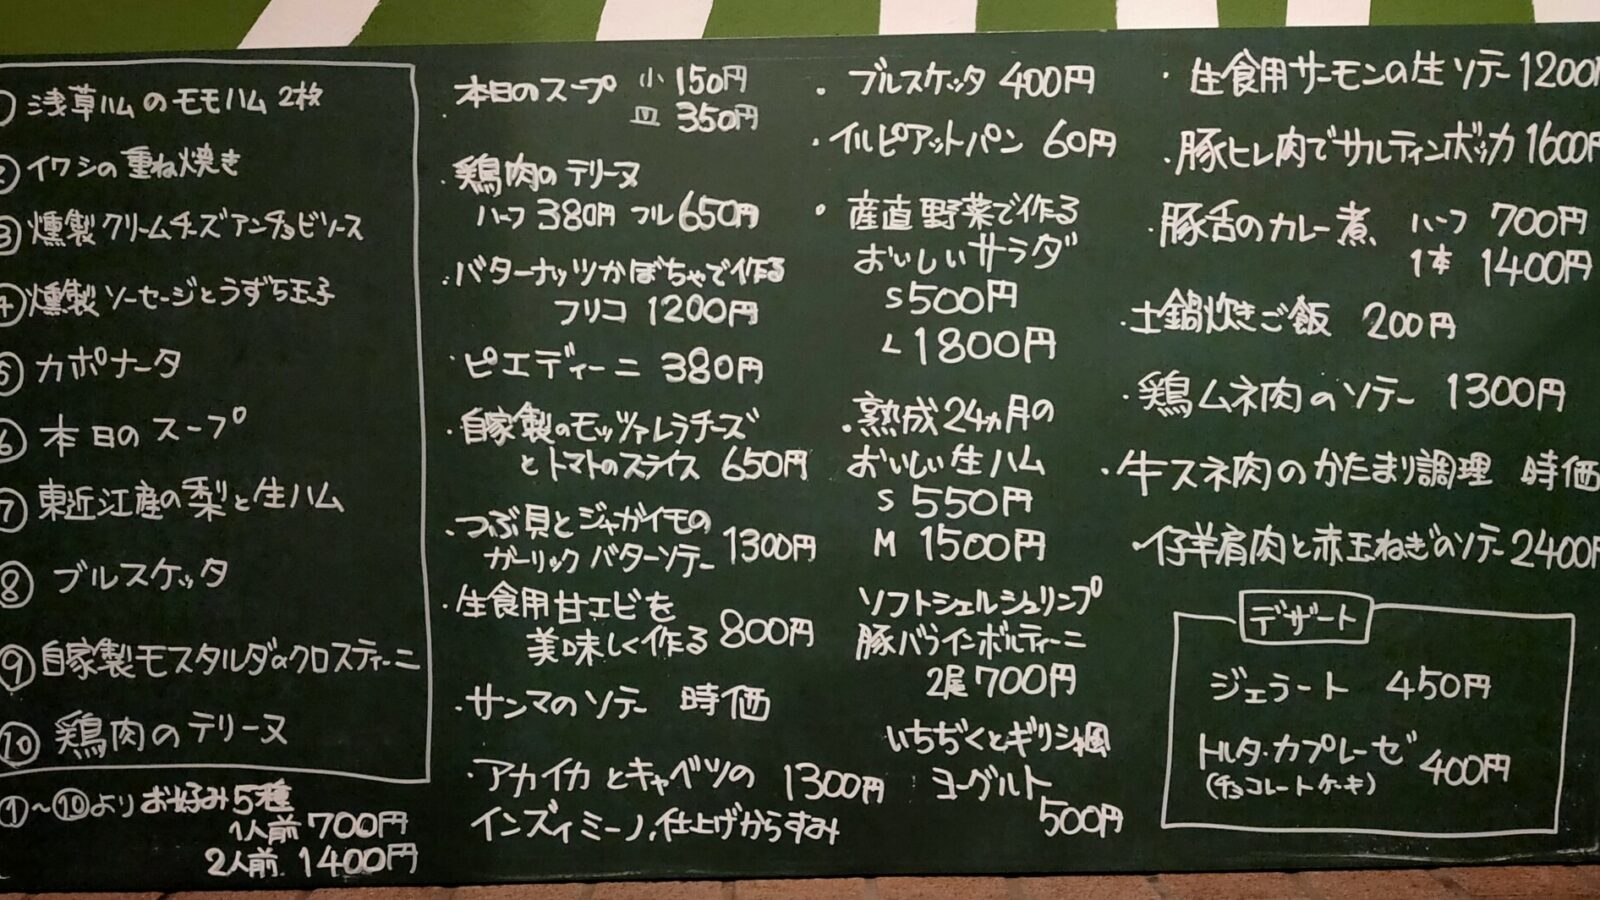 ① 浅草ハムのモモハム 2枚
② イワシの重ね焼き
③ 燻製クリームチーズアンチョビソース
④ 燻製ソーセージとうずら玉子
⑤ カポナータ
⑥ 本日のスープ
⑦ 東近江産の梨と生ハム
⑧ ブルスケッタ
⑨ 自家製モスタルダのクロスティーニ
⑩ 鶏肉のテリーヌ
①〜⑩よりお好み5種
1人前 700円
2人前 1400円
・本日のスープ 小 150円
皿 350円
・鶏肉のテリーヌ
ハーフ 380円 フル 650円
・バターナッツかぼちゃで作る
フリコ 1200円
・ピエディーニ 380円
・自家製のモッツァレラチーズ
とトマトのスライス 650円
・つぶ貝とジャガイモの
ガーリックバターソテー 1300円
・生食用甘エビを
美味しく作る 800円
・サンマのソテー 時価
・アカイカとキャベツの 1300円
インズィミーノ、仕上げからすみ
・ブルスケッタ 400円
・イルピアットパン 60円
・産直野菜で作る
おいしいサラダ
S 500円
L 1800円
・熟成24ヵ月の
おいしい生ハム
S 550円
M 1500円
ソフトシェルシュリンプ
豚バラインボルティーニ
2尾 700円
いちぢくとギリシャ風
ヨーグルト
500円
・生食用サーモンの生ソテー 1200円
・豚ヒレ肉でサルティンボッカ 1600円
・豚舌のカレー煮 ハーフ 700円
1本 1400円
・土鍋炊きご飯 200円
・鶏ムネ肉のソテー 1300円
・牛スネ肉のかたまり調理 時価
・仔羊肩肉と赤玉ねぎのソテー 2400円
デザート
ジェラート 450円
トルタ・カプレーゼ 400円
(チョコレートケーキ)